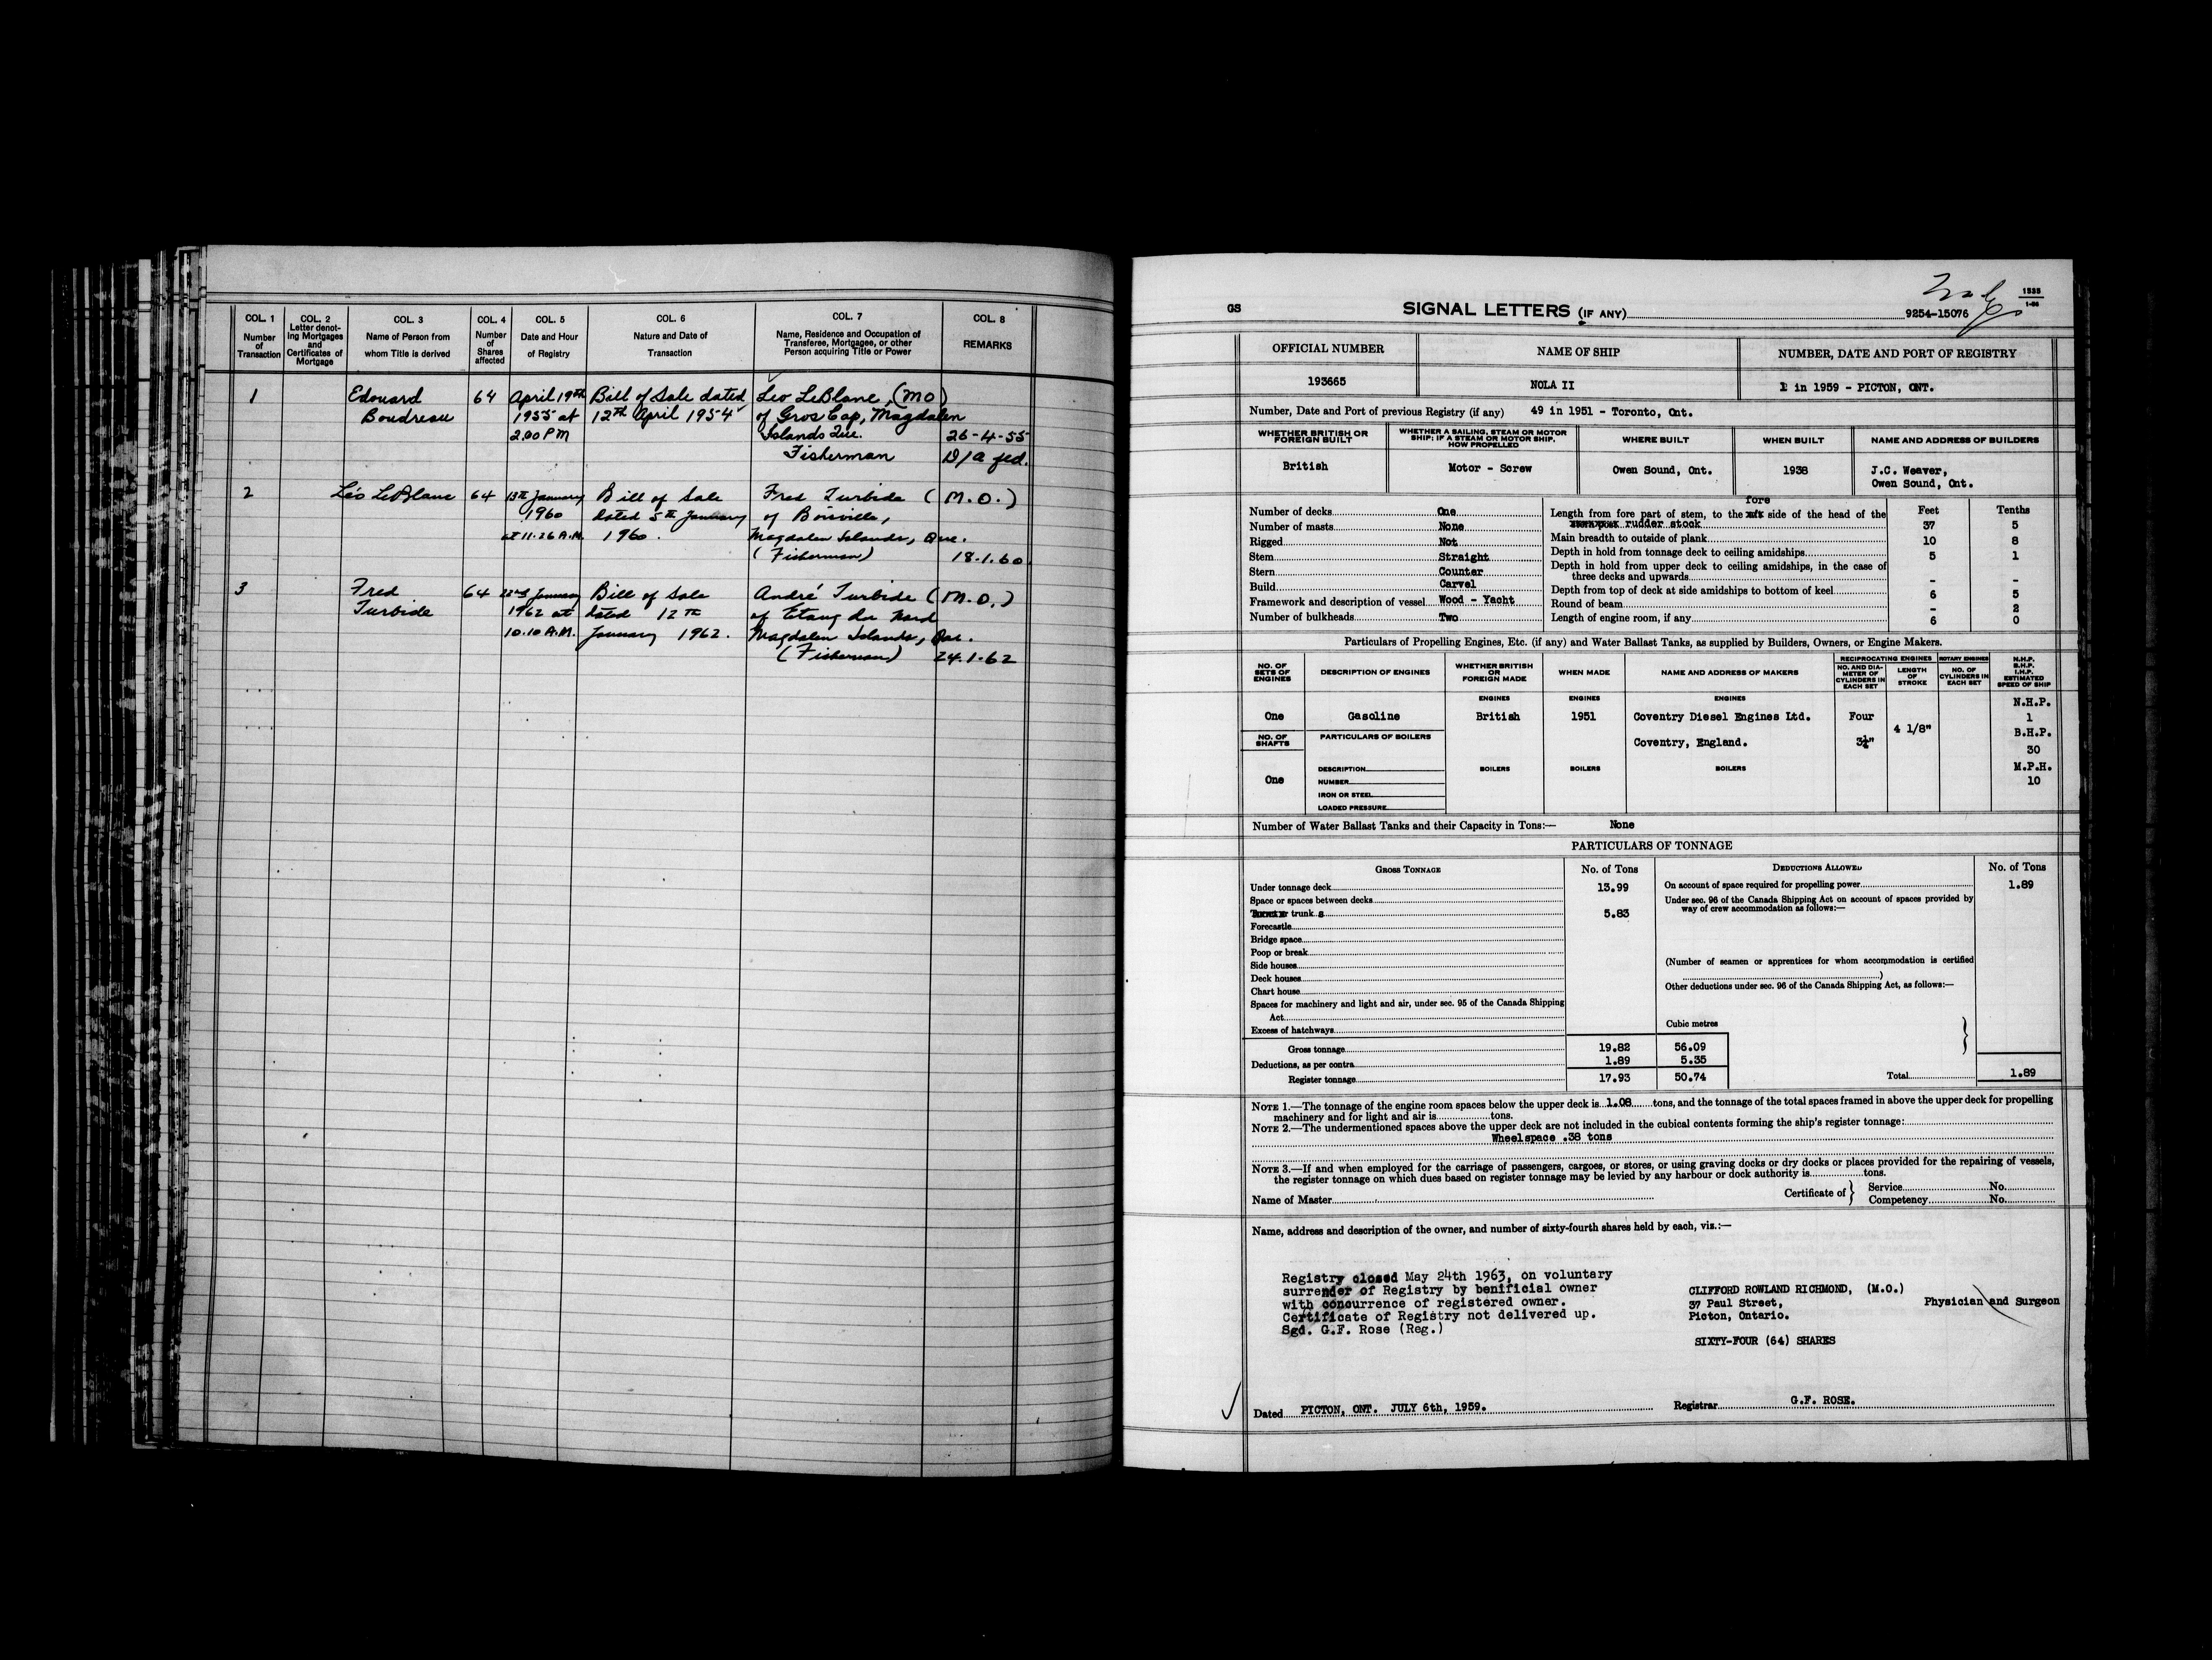 COL. 1 COL. 2 COL. 3 COL. 4 COL. 5 COL. 6 COL. 7 COL. 8
Number of Transaction
Letter denoting Mortgages and Certificates of Mortgage
Name of Person from whom Title is derived
Number of Shares affected
Date and Hour of Registry
Nature and Date of Transaction
Name, Residence and Occupation of Transferee, Mortgagee, or other Person acquiring Title or Power
REMARKS
1 Edouard 64 April 19th Bill of Sale dated Leo LeBlanc, (MO)
Boudreau 1955 at 12th April 1954 of Gros Cap, Magdalen
2.00 PM Islands Que. 26-4-55
Fisherman D/a fed.
2 Léo LeBlanc 64 13th January Bill of Sale Fred Turbide (M.O.)
1960 dated 5th January of Boisville,
at 11.26 A.M. 1960. Magdalen Islands, Que.
(Fisherman) 18.1.60
3 Fred 64 22nd January Bill of Sale André Turbide (M.O.)
Turbide 1962 at dated 12th of Etang du Nord
10.10 A.M. January 1962. Magdalen Islands, Que.
(Fisherman) 24.1.62
1535
1-56
GS SIGNAL LETTERS (IF ANY) 9254-15076
OFFICIAL NUMBER NAME OF SHIP NUMBER, DATE AND PORT OF REGISTRY
193665 NOLA II 1 in 1959 - PICTON, ONT.
Number, Date and Port of previous Registry (if any) 49 in 1951 - Toronto, Ont.
WHETHER BRITISH OR FOREIGN BUILT
WHETHER A SAILING, STEAM OR MOTOR SHIP; IF A STEAM OR MOTOR SHIP, HOW PROPELLED
WHERE BUILT WHEN BUILT NAME AND ADDRESS OF BUILDERS
British Motor - Screw Owen Sound, Ont. 1938 J.C. Weaver,
Owen Sound, Ont.
Number of decks One
Number of masts None
Rigged Not
Stem Straight
Stern Counter
Build Carvel
Framework and description of vessel Wood - Yacht
Number of bulkheads Two
Feet Tenths
fore
Length from fore part of stem, to the aft side of the head of the
sternpost rudder stock 37 5
Main breadth to outside of plank 10 8
Depth in hold from tonnage deck to ceiling amidships 5 1
Depth in hold from upper deck to ceiling amidships, in the case of
three decks and upwards - -
Depth from top of deck at side amidships to bottom of keel 6 5
Round of beam - 2
Length of engine room, if any 6 0
Particulars of Propelling Engines, Etc. (if any) and Water Ballast Tanks, as supplied by Builders, Owners, or Engine Makers.
NO. OF SETS OF ENGINES
DESCRIPTION OF ENGINES
WHETHER BRITISH OR FOREIGN MADE
WHEN MADE
NAME AND ADDRESS OF MAKERS
RECIPROCATING ENGINES
NO. AND DIAMETER OF CYLINDERS IN EACH SET
LENGTH OF STROKE
ROTARY ENGINES
NO. OF CYLINDERS IN EACH SET
N.H.P.
B.H.P.
I.H.P.
ESTIMATED SPEED OF SHIP
ENGINES ENGINES ENGINES
N.H.P.
One Gasoline British 1951 Coventry Diesel Engines Ltd. Four 4 1/8" 1
NO. OF SHAFTS PARTICULARS OF BOILERS B.H.P.
Coventry, England. 3¼" 30
DESCRIPTION BOILERS BOILERS BOILERS M.P.H.
One NUMBER 10
IRON OR STEEL
LOADED PRESSURE
Number of Water Ballast Tanks and their Capacity in Tons:— None
PARTICULARS OF TONNAGE
GROSS TONNAGE No. of Tons DEDUCTIONS ALLOWED No. of Tons
Under tonnage deck 13.99
Space or spaces between decks
trunk s 5.83
Forecastle
Bridge space
Poop or break
Side houses
Deck houses
Chart house
Spaces for machinery and light and air, under sec. 95 of the Canada Shipping
Act
Excess of hatchways
Cubic metres
Gross tonnage 19.82 56.09
Deductions, as per contra 1.89 5.35
Register tonnage 17.93 50.74
On account of space required for propelling power 1.89
Under sec. 96 of the Canada Shipping Act on account of spaces provided by
way of crew accommodation as follows:—
(Number of seamen or apprentices for whom accommodation is certified
)
Other deductions under sec. 96 of the Canada Shipping Act, as follows:—
Total 1.89
NOTE 1.—The tonnage of the engine room spaces below the upper deck is 1.08 tons, and the tonnage of the total spaces framed in above the upper deck for propelling
machinery and for light and air is tons.
NOTE 2.—The undermentioned spaces above the upper deck are not included in the cubical contents forming the ship's register tonnage:
Wheelspace .38 tons
NOTE 3.—If and when employed for the carriage of passengers, cargoes, or stores, or using graving docks or dry docks or places provided for the repairing of vessels,
the register tonnage on which dues based on register tonnage may be levied by any harbour or dock authority is tons.
Name of Master Certificate of Service No.
Competency No.
Name, address and description of the owner, and number of sixty-fourth shares held by each, viz.:—
Registry closed May 24th 1963, on voluntary
surrender of Registry by benificial owner
with concurrence of registered owner.
Certificate of Registry not delivered up.
Sgd. G.F. Rose (Reg.)
CLIFFORD ROWLAND RICHMOND, (M.O.)
37 Paul Street, Physician and Surgeon
Picton, Ontario.
SIXTY-FOUR (64) SHARES
Dated PICTON, ONT. JULY 6th, 1959. Registrar G.F. ROSE.